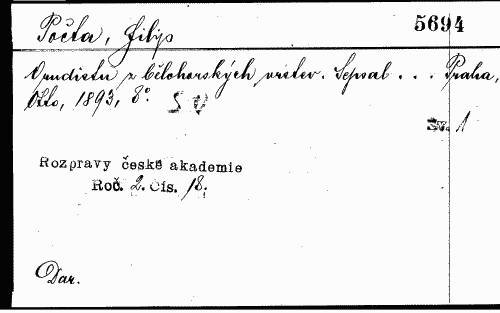 Počta, Filip
5694
O rudistu z bělohorských vrstev. Sepsal . . . Praha,
Otto, 1893, 8°. S V
Sv. 1
Rozpravy české akademie
Roč. 2. Čís. 18.
Dar.